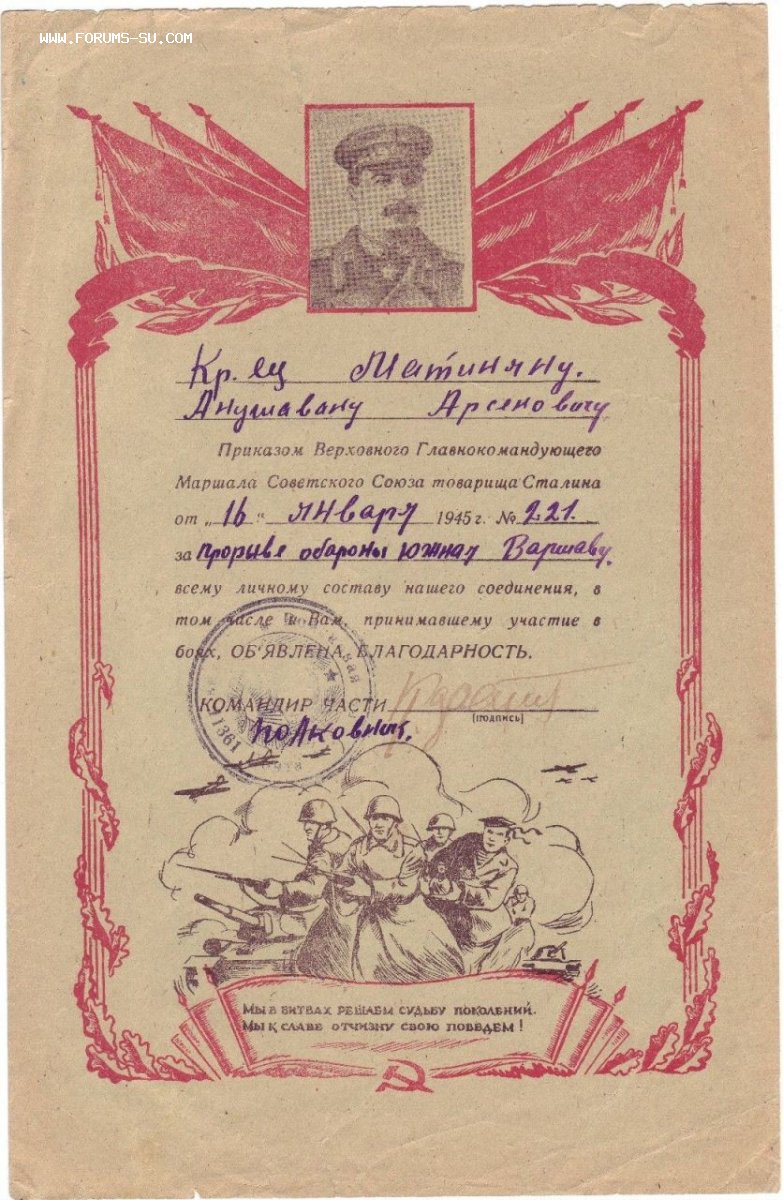 WWW.FORUMS-SU.COM
Кр. ец Матиняну.
Анушавану Арсеновичу
Приказом Верховного Главнокомандующего
Маршала Советского Союза товарища Сталина
от „16" января 1945 г. № 221.
за прорыве обороны южная Варшаву.
всему личному составу нашего соединения, в
том числе и Вам, принимавшему участие в
боях, ОБ'ЯВЛЕНА БЛАГОДАРНОСТЬ.
КОМАНДИР ЧАСТИ
(подпись)
полковник.
11361
МЫ В БИТВАХ РЕШАЕМ СУДЬБУ ПОКОЛЕНИЙ.
МЫ К СЛАВЕ ОТЧИЗНУ СВОЮ ПОВЕДЕМ!